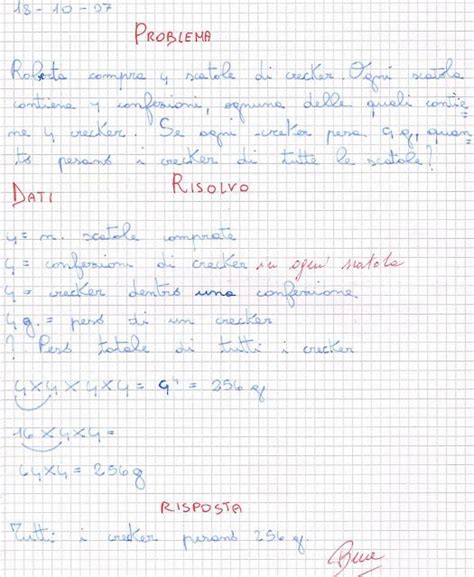 18-10-07
PROBLEMA
Roberta compra 4 scatole di crecker. Ogni scatola
contiene 4 confezioni, ognuna delle quali contie-
ne 4 crecker. Se ogni creker pesa 4 g, quan-
to pesano i crecker di tutte le scatole?
DATI RISOLVO
4 = n. scatole comprate
4 = confezioni di crecker in ogni scatola
4 = crecker dentro una confezione
4 g. = peso di un crecker
? Peso totale di tutti i crecker
4×4×4×4 = 4⁴ = 256 g
16×4×4 =
64×4 = 256 g
RISPOSTA
Tutti i crecker pesano 256 g.
Bene